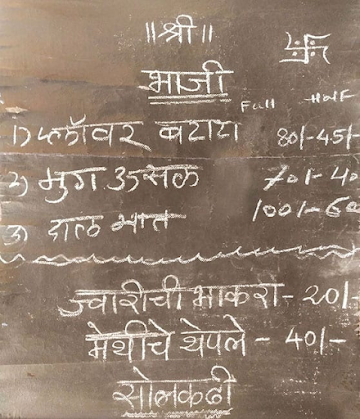 ॥श्री॥
भाजी
Full Half
1) फ्लॉवर बटाटा 80/-45/-
2) मुग उसळ 70/-40
3) डाळ भात 100/-60
ज्वारीची भाकरी- 20/-
मेथीचे थेपले - 40/-
सोलकढी